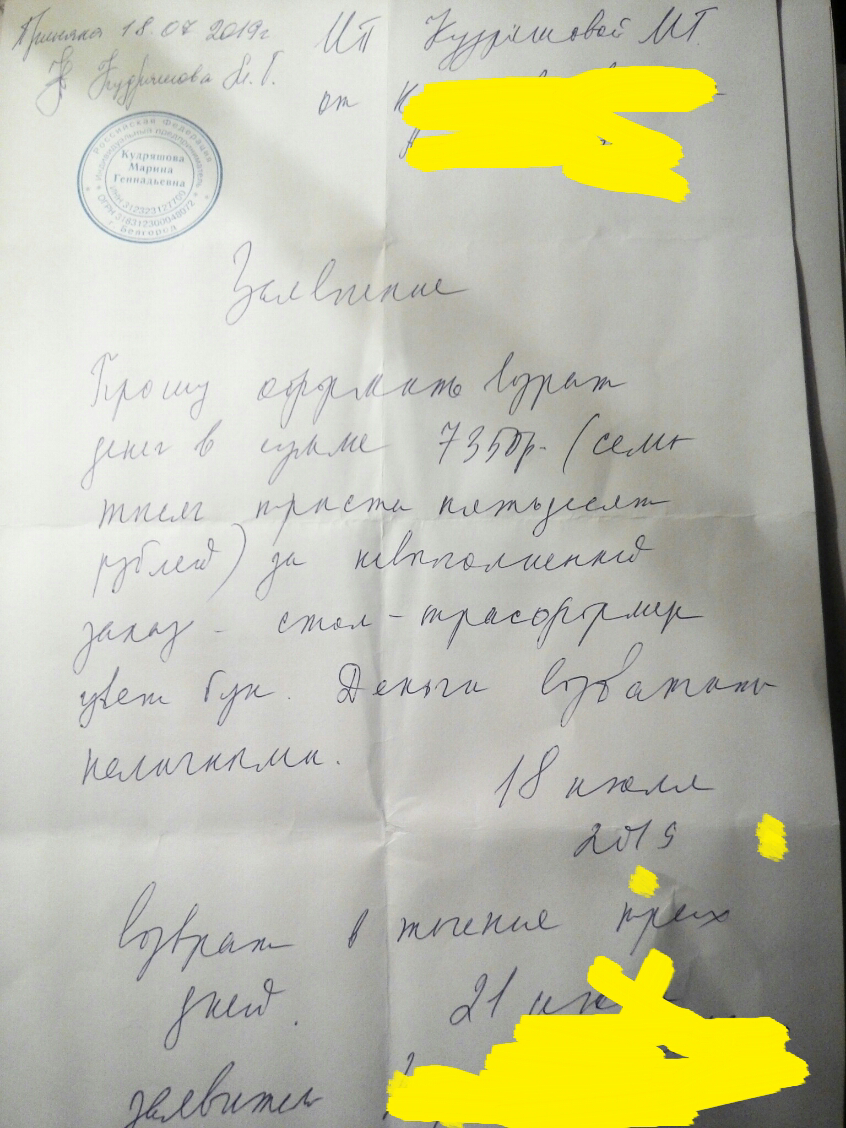 Приняла 18.07.2019г
Кудряшова М.Г.
ИП Кудряшовой М.Г.
от
Российская Федерация
Индивидуальный предприниматель
Кудряшова
Марина
Геннадьевна
г. Белгород
Заявление
Прошу оформить возврат
денег в сумме 7350р. (семь
тысяч триста пятьдесят
рублей) за невыполненный
заказ - стол-трасформер
цвет бук. Деньги
наличными.
18 июля
2019
Возврат в течение трех
дней. 21
заявитель